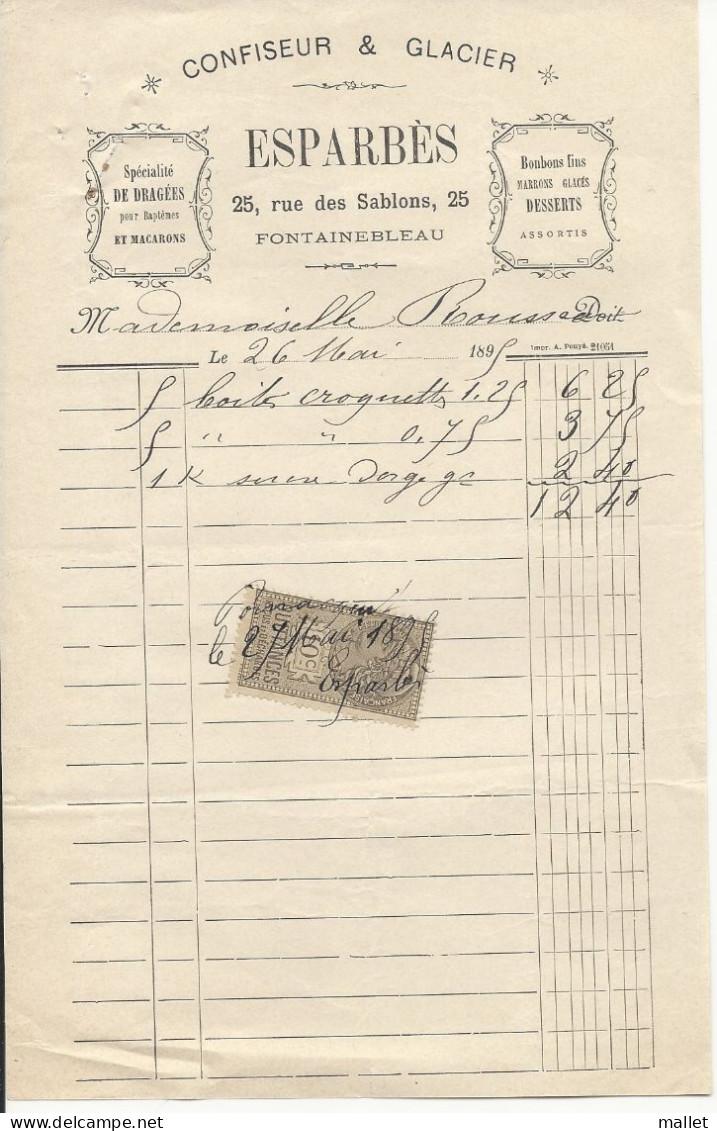 CONFISEUR & GLACIER
ESPARBÈS
25, rue des Sablons, 25
FONTAINEBLEAU
Spécialité
DE DRAGÉES
pour Baptêmes
ET MACARONS
Bonbons fins
MARRONS GLACÉS
DESSERTS
ASSORTIS
Mademoiselle Rousseau Doit
Impr. A. Pouyé. 21051
Le 26 Mai 1895
5 boites croquettes 1.25 6 25
5 " " 0.75 3 75
1 K sucre Dorge gr 2 40
12 40
Pour acquit
le 27 Mai 1895
Esparbès
QUITTANCES
10c
FRANÇAISE
mallet